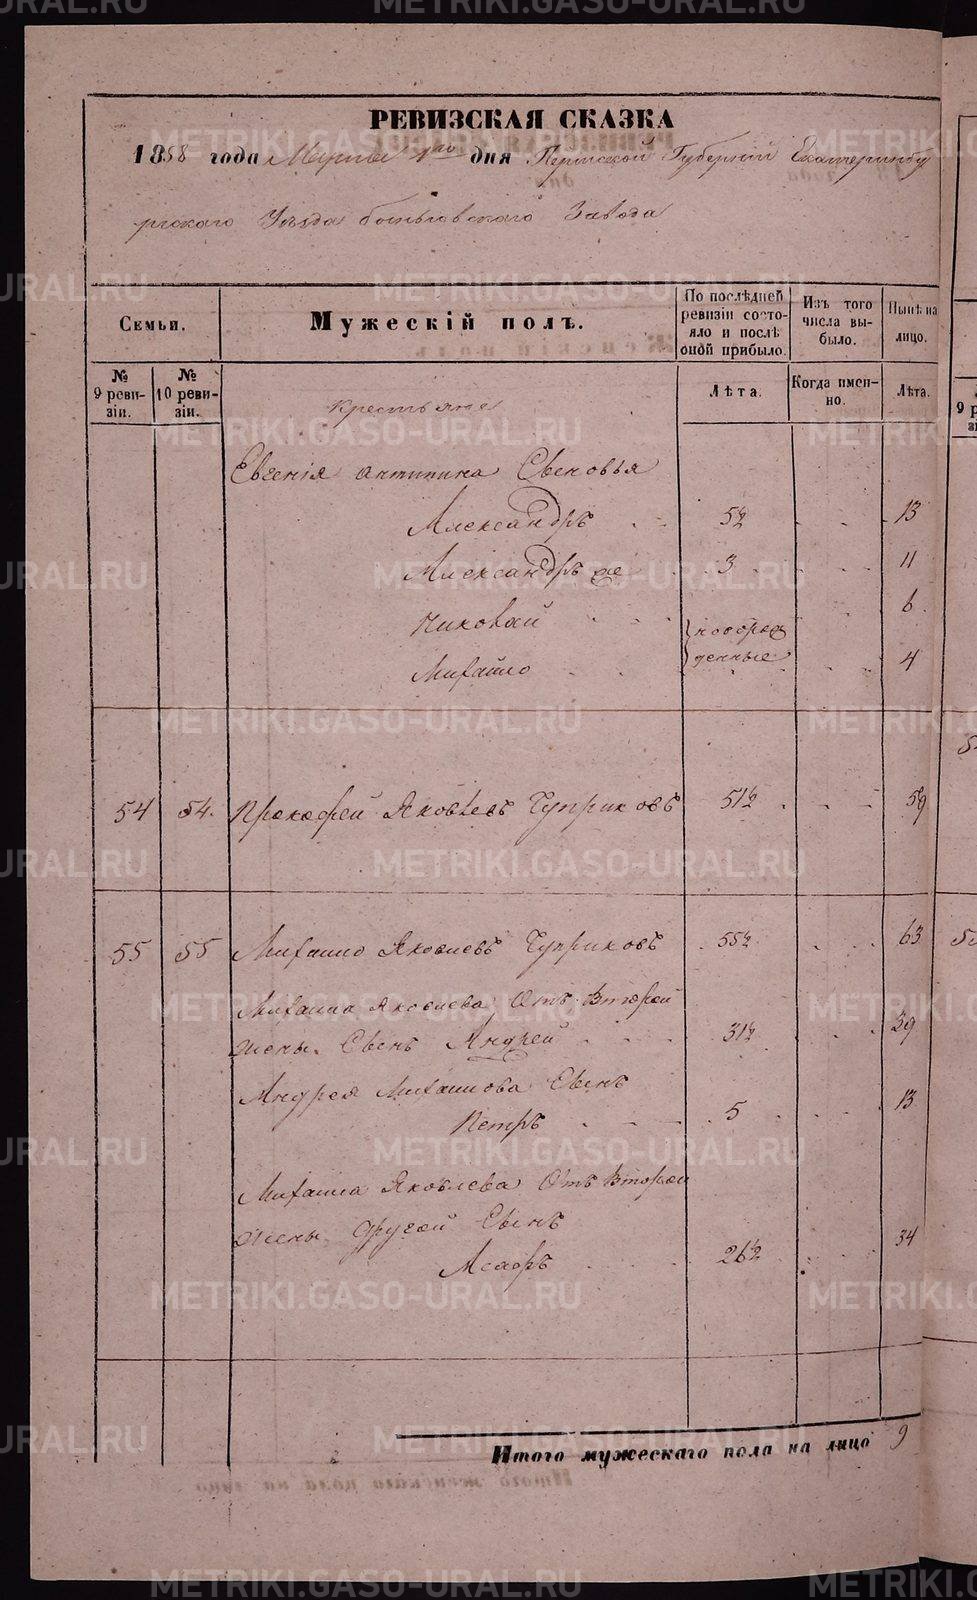 РЕВИЗСКАЯ СКАЗКА
1858 года Марта 1го дня Пермской Губерніи Екатеринбу
ргскаго Уѣзда Боньговскаго Завода
Семьи.
Мужескій полъ.
По послѣдней ревизіи состояло и послѣ оной прибыло.
Изъ того числа выбыло.
Нынѣ на лицо.
№ 9 ревизіи.
№ 10 ревизіи.
Лѣта.
Когда именно.
Лѣта.
Крестьяне
Евгенія Антипина Сыновья
Александръ 5½ 13
Александръ же 3 11
Николай 6
новорож
денные
Михайло 4
54 54. Прокофей Яковлевъ Чуприковъ 51½ 59
55 55 Михайло Яковлевъ Чуприковъ 55½ 63
Михаила Яковлева Отъ Второй
жены Сынъ Андрей 31½ 39
Андрея Михайлова Сынъ
Петръ 5 13
Михаила Яковлева Отъ Второй
жены другой Сынъ
26½ 34
Итого мужескаго пола на лицо 9
METRIKI.GASO-URAL.RU